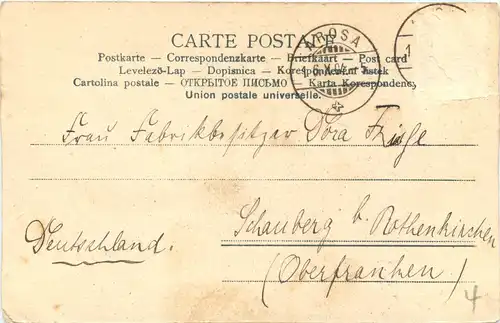 CARTE POSTALE
Postkarte — Correspondenzkarte — Briefkaart — Post card
Levelező-Lap — Dopisnica — Korespondenční lístek
Cartolina postale — ОТКРЫТОЕ ПИСЬМО — Karta Korespondency
Union postale universelle.
AROSA
Frau Fabrikbesitzer Dora
Schauberg b. Rothenkirchen
Deutschland.
(Oberfranken)
4